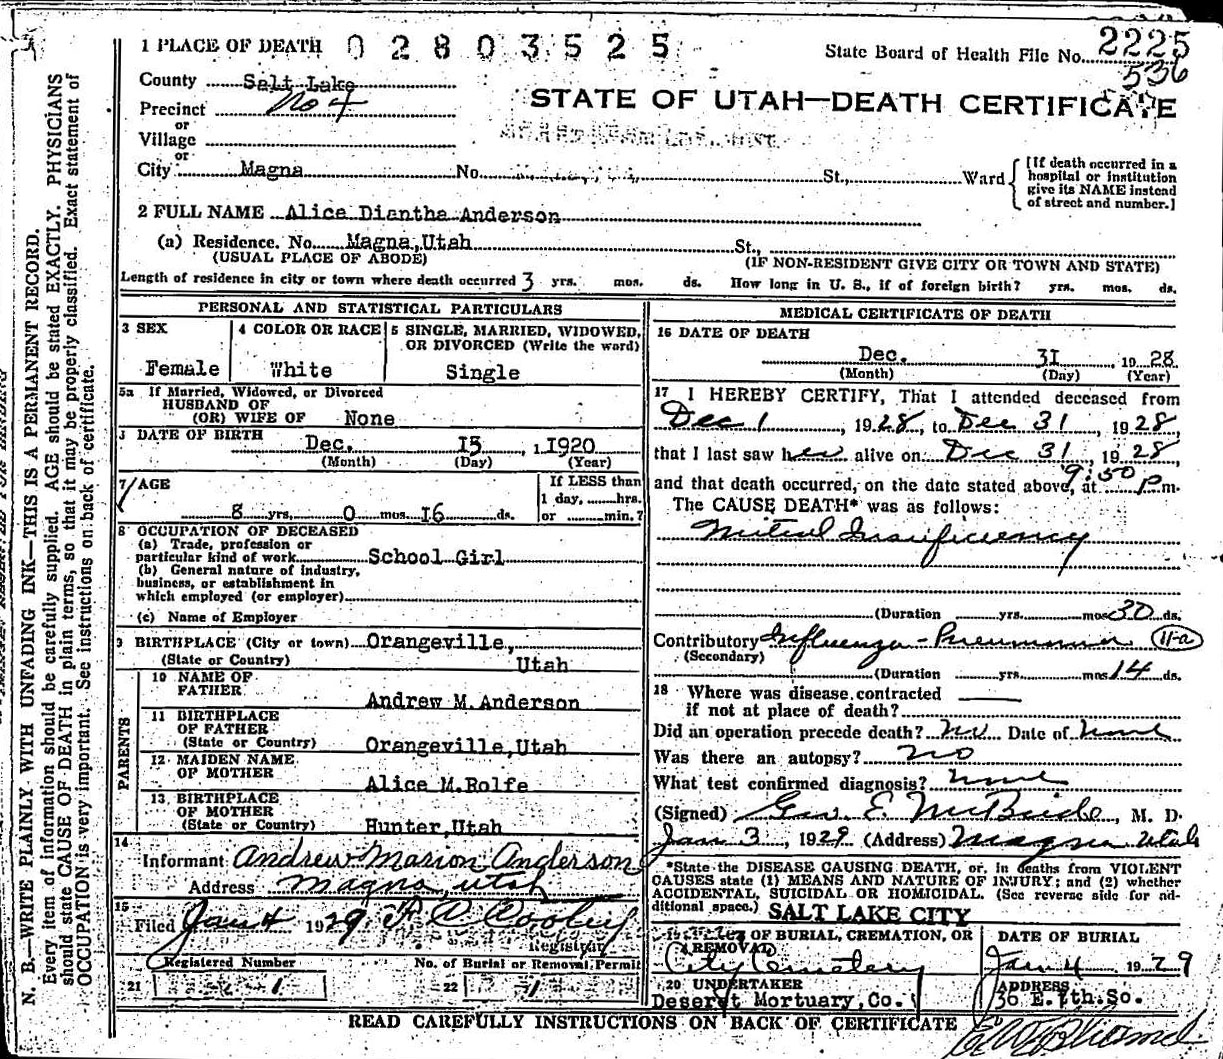 1 PLACE OF DEATH 02803525
State Board of Health File No. 2225
536
County Salt Lake
Precinct No 4
or
Village
or
City Magna No. St., Ward
[If death occurred in a
hospital or institution
give its NAME instead
of street and number.]
STATE OF UTAH—DEATH CERTIFICATE
2 FULL NAME Alice Diantha Anderson
(a) Residence. No. Magna, Utah St.,
(USUAL PLACE OF ABODE) (IF NON-RESIDENT GIVE CITY OR TOWN AND STATE)
Length of residence in city or town where death occurred 3 yrs. mos. ds. How long in U. S., if of foreign birth? yrs. mos. ds.
PERSONAL AND STATISTICAL PARTICULARS
3 SEX
Female
4 COLOR OR RACE
White
5 SINGLE, MARRIED, WIDOWED,
OR DIVORCED (Write the word)
Single
5a If Married, Widowed, or Divorced
HUSBAND OF
(OR) WIFE OF None
DATE OF BIRTH
Dec. 15, 1920
(Month) (Day) (Year)
7 AGE
8 yrs. 0 mos. 16 ds.
If LESS than
1 day, hrs.
or min.?
8 OCCUPATION OF DECEASED
(a) Trade, profession or
particular kind of work School Girl
(b) General nature of industry,
business, or establishment in
which employed (or employer)
(c) Name of Employer
9 BIRTHPLACE (City or town) Orangeville,
(State or Country) Utah
PARENTS
10 NAME OF
FATHER Andrew M. Anderson
11 BIRTHPLACE
OF FATHER
(State or Country) Orangeville, Utah
12 MAIDEN NAME
OF MOTHER Alice M. Rolfe
13 BIRTHPLACE
OF MOTHER
(State or Country) Hunter, Utah
14
Informant Andrew Marion Anderson
Address Magna, Utah
15
Filed Jan 4 1929
Registrar
Registered Number No. of Burial or Removal Permit
21 1 22 1
MEDICAL CERTIFICATE OF DEATH
16 DATE OF DEATH
Dec. 31 1928
(Month) (Day) (Year)
17 I HEREBY CERTIFY, That I attended deceased from
Dec 1, 1928, to Dec 31, 1928,
that I last saw her alive on Dec 31, 1928,
and that death occurred, on the date stated above, at 9:50 P.m.
The CAUSE DEATH* was as follows:
Mitral Insufficiency
(Duration yrs. mos 30 ds.
Contributory Influenza - Pneumonia 11-a
(Secondary)
(Duration yrs. mos 14 ds.
18 Where was disease contracted
if not at place of death?
Did an operation precede death? No Date of None
Was there an autopsy? No
What test confirmed diagnosis? None
(Signed) Geo. E. McBride, M. D.
Jan 3, 1929 (Address) Magna Utah
*State the DISEASE CAUSING DEATH, or, in deaths from VIOLENT
CAUSES state (1) MEANS AND NATURE OF INJURY; and (2) whether
ACCIDENTAL, SUICIDAL OR HOMICIDAL. (See reverse side for ad-
ditional space.) SALT LAKE CITY
19 OF BURIAL, CREMATION, OR
REMOVAL
City Cemetery
DATE OF BURIAL
Jan 4 1929
20 UNDERTAKER
Deseret Mortuary, Co.
ADDRESS
36 E. 7th. So.
READ CAREFULLY INSTRUCTIONS ON BACK OF CERTIFICATE
N. B.—WRITE PLAINLY WITH UNFADING INK—THIS IS A PERMANENT RECORD.
Every item of information should be carefully supplied. AGE should be stated EXACTLY. PHYSICIANS
should state CAUSE OF DEATH in plain terms, so that it may be properly classified. Exact statement of
OCCUPATION is very important. See instructions on back of certificate.